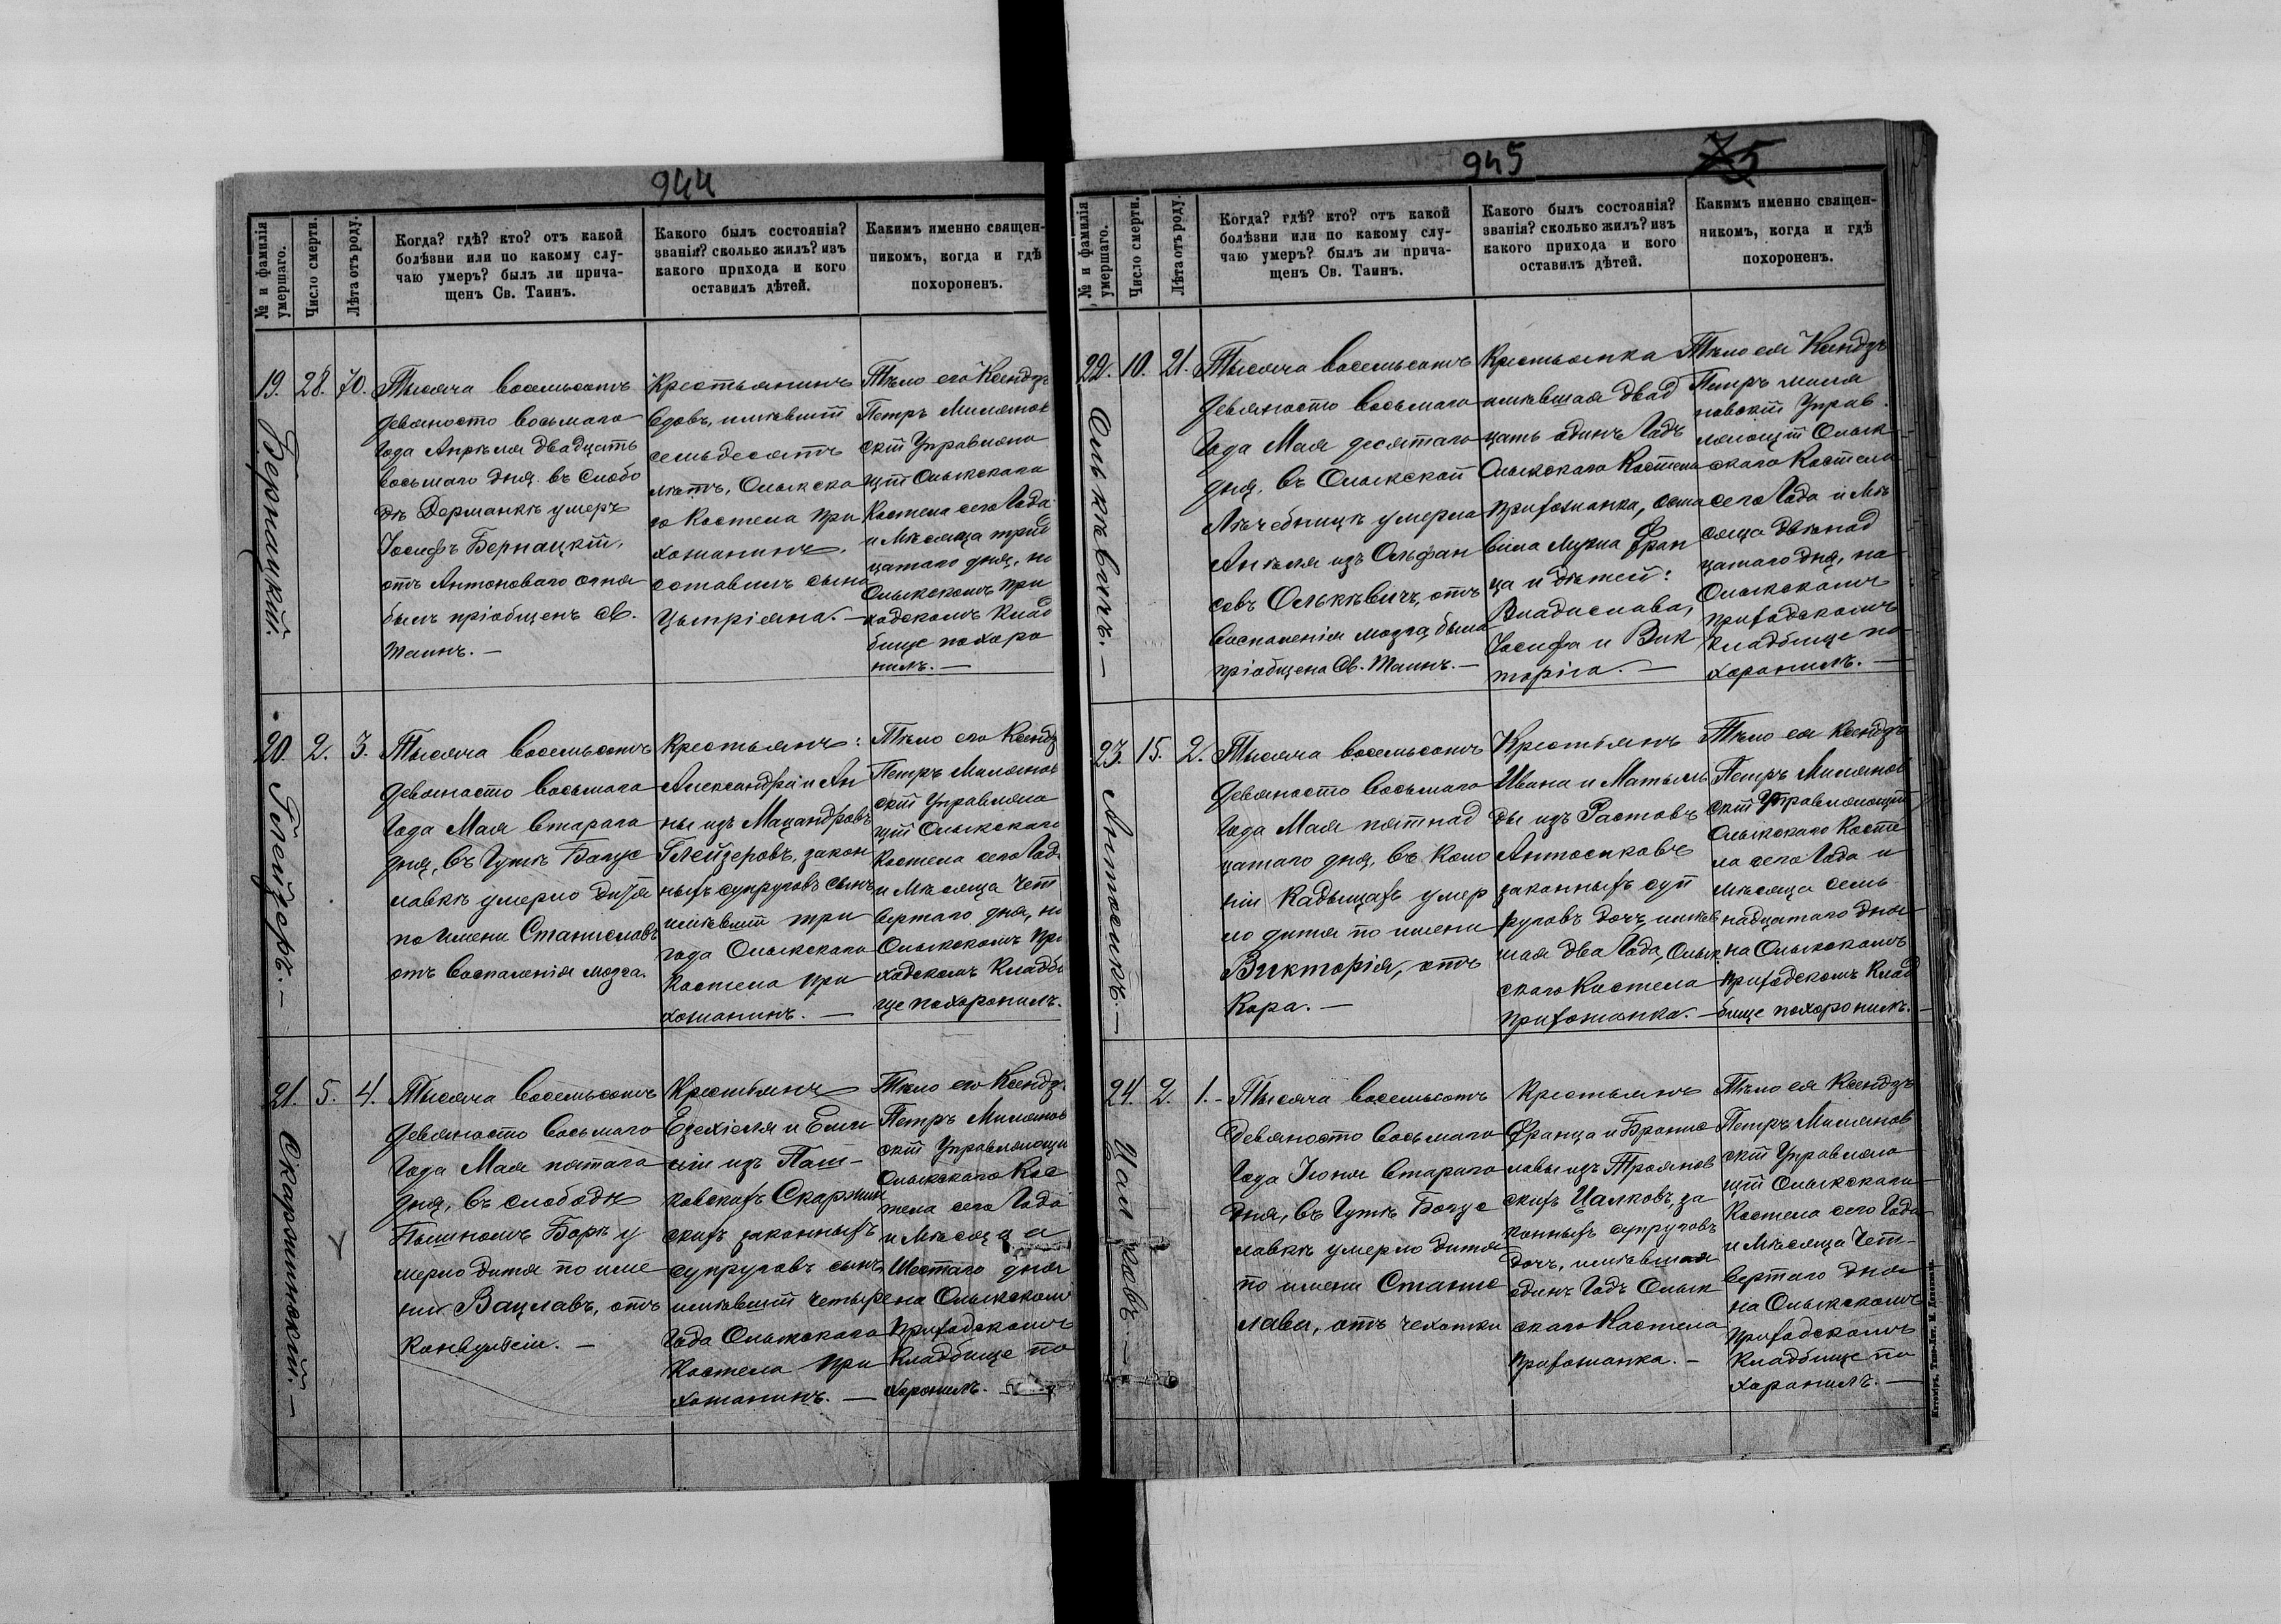 944
№ и фамилія
умершаго.
Число смерти.
Лѣта отъ роду.
Когда? гдѣ? кто? отъ какой
болѣзни или по какому слу-
чаю умеръ? былъ ли прича-
щенъ Св. Таинъ.
Какого былъ состоянія?
званія? сколько жилъ? изъ
какого прихода и кого
оставилъ дѣтей.
Какимъ именно священ-
никомъ, когда и гдѣ
похороненъ.
19.
Бернацкій.
28.
70.
Тысяча восемьсотъ
девяносто восьмаго
года Апрѣля двадцать
восьмаго дня въ Слобо
дѣ Дерманкѣ умеръ
Іосифъ Бернацкій,
отъ Антоноваго огня
былъ пріобщенъ Св.
Таинъ. —
Крестьянинъ
вдовъ, имѣвшій
семьдесятъ
лѣтъ, Олыкска
го Костела при
хожанинъ,
оставилъ сына
Цыпріяна. —
Тѣло его Ксендзъ
Петръ Милянов
скій Управляю
щій Олыкскаго
Костела сего Года
и Мѣсяца трид
цатаго дня, на
Олыкскомъ при
ходскомъ клад
бище похоро
нилъ. —
20.
Глейзеръ. —
2.
3.
Тысяча восемьсотъ
девяносто восьмаго
Года Мая втораго
дня, въ Гутѣ Богус
лавкѣ умерло дитя
по имени Станиславъ
отъ воспаленія мозга.
Крестьянъ:
Александра и Ан
ны изъ Мацандровъ
Глейзеровъ, закон
ныхъ супруговъ сынъ
имѣвшій три
года Олыкскаго
Костела при
хожанинъ. —
Тѣло его Ксендз
Петръ Милянов
скій Управляю
щій Олыкскаго
Костела сего Года
и Мѣсяца чет
вертаго дня, на
Олыкскомъ при
ходскомъ кладби
ще похоронилъ.
21.
Скаржинскій. —
5.
4.
Тысяча восемьсотъ
девяносто восьмаго
Года Мая пятаго
дня, въ слободѣ
Борѣ у
мерло дитя по име
ни Вацлавъ, отъ
Конвульсіи. —
Крестьянъ
Езехіеля и Еми
ліи изъ
ковскихъ Скаржин
скихъ законныхъ
супруговъ сынъ,
имѣвшій четыре
Года Олыкскаго
Костела при
хожанинъ. —
Тѣло его Ксендз
Петръ Милянов
скій Управляющій
Олыкскаго Кос
тела сего Года
и Мѣсяца
Шестаго дня
на Олыкскомъ
Приходскомъ
Кладбище по
хоронилъ. —
945
75
№ и фамилія
умершаго.
Число смерти.
Лѣта отъ роду.
Когда? гдѣ? кто? отъ какой
болѣзни или по какому слу-
чаю умеръ? былъ ли прича-
щенъ Св. Таинъ.
Какого былъ состоянія?
званія? сколько жилъ? изъ
какого прихода и кого
оставилъ дѣтей.
Какимъ именно священ-
никомъ, когда и гдѣ
похороненъ.
22.
Олькѣвичъ. —
10.
21.
Тысяча восемьсотъ
девяносто восьмаго
Года Мая десятаго
дня, въ Олыкской
Лѣчебницѣ умерла
Анѣля изъ Ольфан
совъ Олькѣвичъ, отъ
воспаленія мозга, была
пріобщена Св. Таинъ. —
Крестьянка
имѣвшая двад
цать одинъ Годъ
Олыкскаго Костела
прихожанка, оста
вила мужа Фран
ца и дѣтей:
Владислава,
Іосифа и Вик
торію. —
Тѣло ея Ксендзъ
Петръ Миля
новскій Управ
ляющій Олык
скаго Костела
сего Года и Мѣ
сяца двѣнад
цатаго дня, на
Олыкскомъ
приходскомъ
кладбище по
хоронилъ. —
23.
Антосикъ. —
15.
2.
Тысяча восемьсотъ
девяносто восьмаго
Года Мая пятнад
цатаго дня, въ коло
ніи Кадыщахъ умер
ло дитя по имени
Викторія, отъ
Кора. —
Крестьянъ
Ивана и Матыль
ды изъ Растовъ
Антосиковъ
законныхъ суп
руговъ дочъ, имѣв
шая два Года, Олык
скаго Костела
прихожанка. —
Тѣло ея Ксендзъ
Петръ Милянов
скій Управляющій
Олыкскаго Косте
ла сего Года и
Мѣсяца семь
надцатаго дня
на Олыкскомъ
Приходскомъ Клад
бище похоронилъ. —
24.
Цалковъ. —
2.
1. -
Тысяча восемьсотъ
девяносто восьмаго
Года Іюня втораго
дня, въ Гутѣ Богус
лавкѣ умерло дитя
по имени Станис
лава, отъ чехотки
Крестьянъ
Франца и Бронис
лавы изъ Трояновс
скихъ Цалковъ, за
конныхъ супруговъ
дочъ, имѣвшая
одинъ Годъ Олык
скаго Костела
прихожанка. —
Тѣло ея Ксендзъ
Петръ Милянов
скій Управляю
щій Олыкскаго
Костела сего Года
и Мѣсяца Чет-
вертаго дня
на Олыкскомъ
приходскомъ
кладбище по
хоронилъ. —